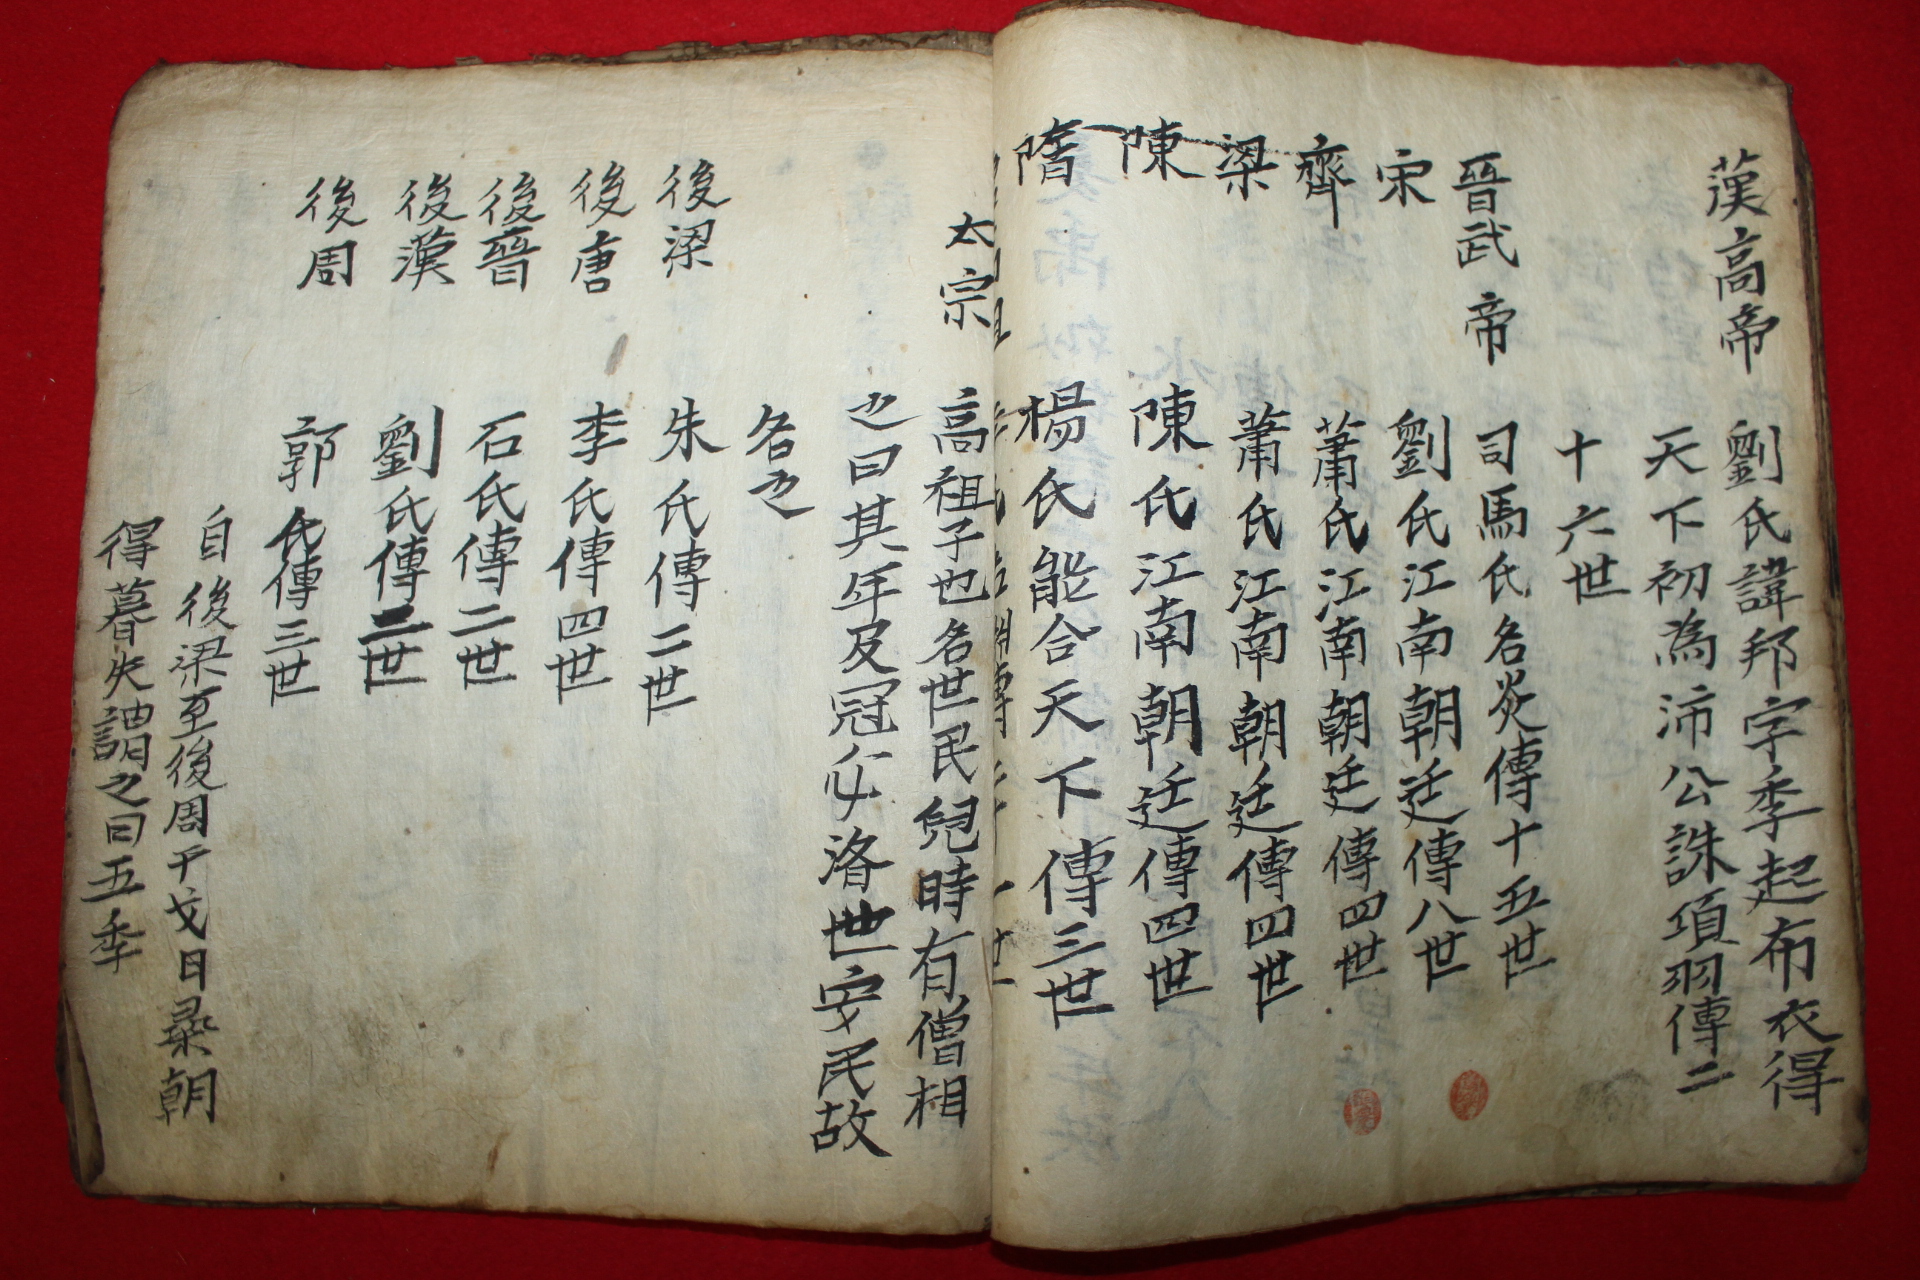 漢高帝 劉氏諱邦字季起布衣得
天下初為沛公誅項羽傳二
十六世
晉武帝 司馬氏名炎傳十五世
宋 劉氏江南朝廷傳八世
齊 蕭氏江南朝廷傳四世
梁 蕭氏江南朝廷傳四世
陳 陳氏江南朝廷傳四世
隋 楊氏能合天下傳三世
太宗 高祖子也名世民兒時有僧相
之曰其年及冠必洛世安民故
名之
後梁 朱氏傳二世
後唐 李氏傳四世
後晉 石氏傳二世
後漢 劉氏傳二世
後周 郭氏傳三世
自後梁至後周干戈日桑朝
得暮失謂之曰五季